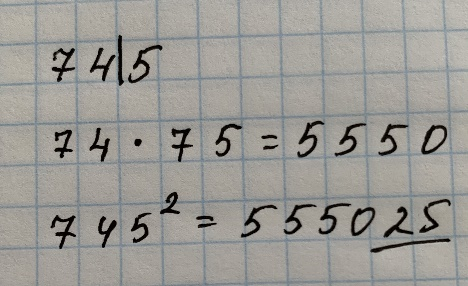 74|5
74 · 75 = 5550
745² = 555025